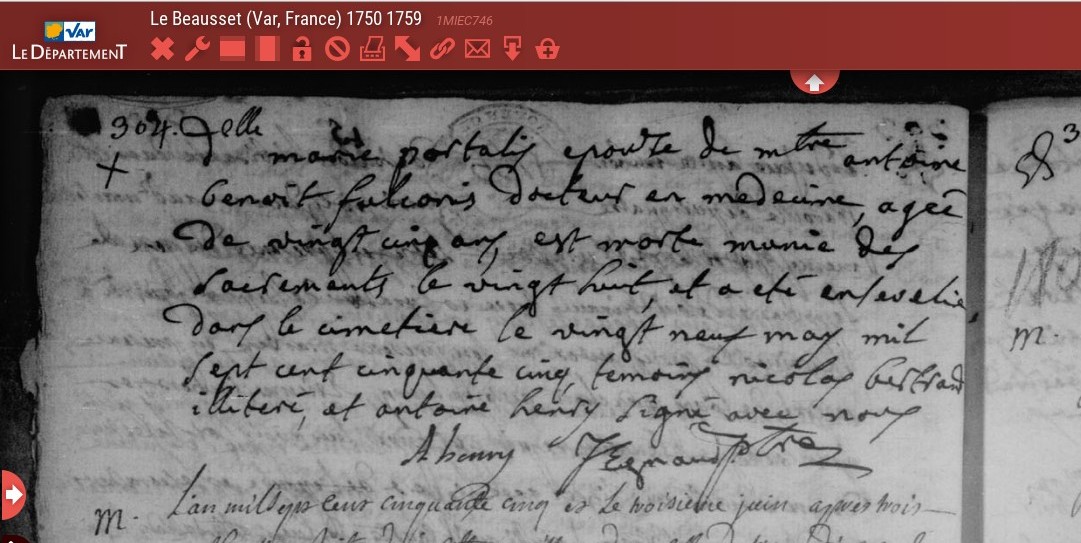 Le Beausset (Var, France) 1750 1759 1MIEC746
VAR
LE DÉPARTEMENT
304. Delle
marie portalis epouse de mtre antoine
benoit falconis docteur en medecine, agee
de vingt cinq ans, est morte munie des
sacrements le vingt huit, et a eté ensevelie
dans le cimetiere le vingt neuf may mil
sept cent cinquante cinq, temoins nicolas bertrand
illiteré, et antoine henry signé avec nous
A henry ptre
M. L'an mil sept cens cinquante cinq et le troisieme juin apres trois
m.